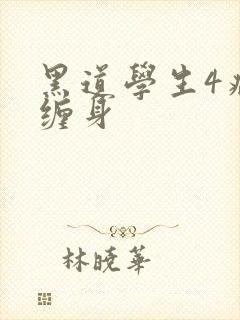 黑道學生4
缠身
林曉華